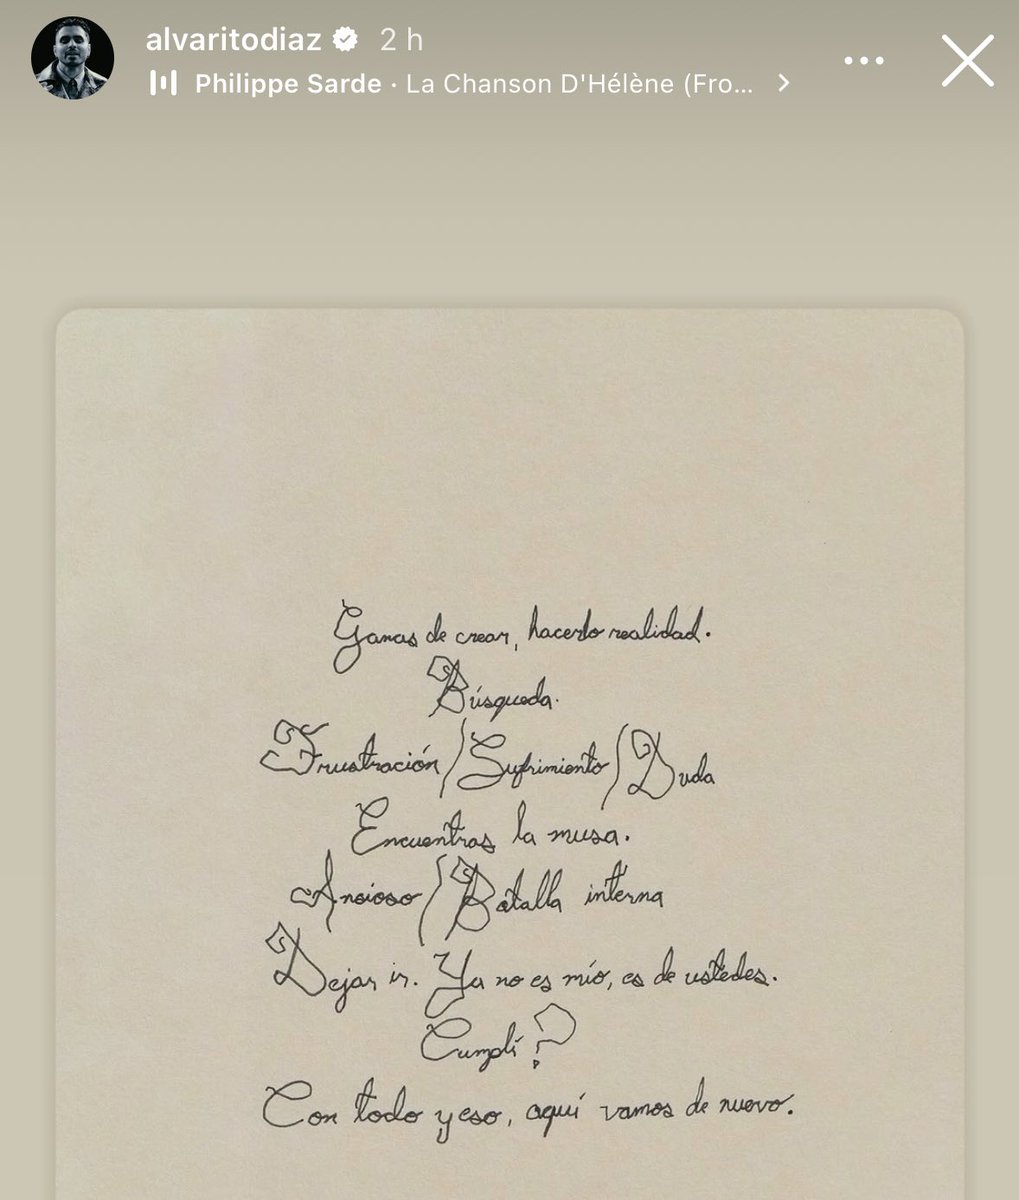 alvaritodiaz 2 h
Philippe Sarde · La Chanson D'Hélène (Fro...
Ganas de crear, hacerlo realidad.
Búsqueda.
Frustración/Sufrimiento/Duda
Encuentras la musa.
Ansioso/Batalla interna
Dejar ir. Ya no es mío, es de ustedes.
Cumplí?
Con todo y eso, aquí vamos de nuevo.